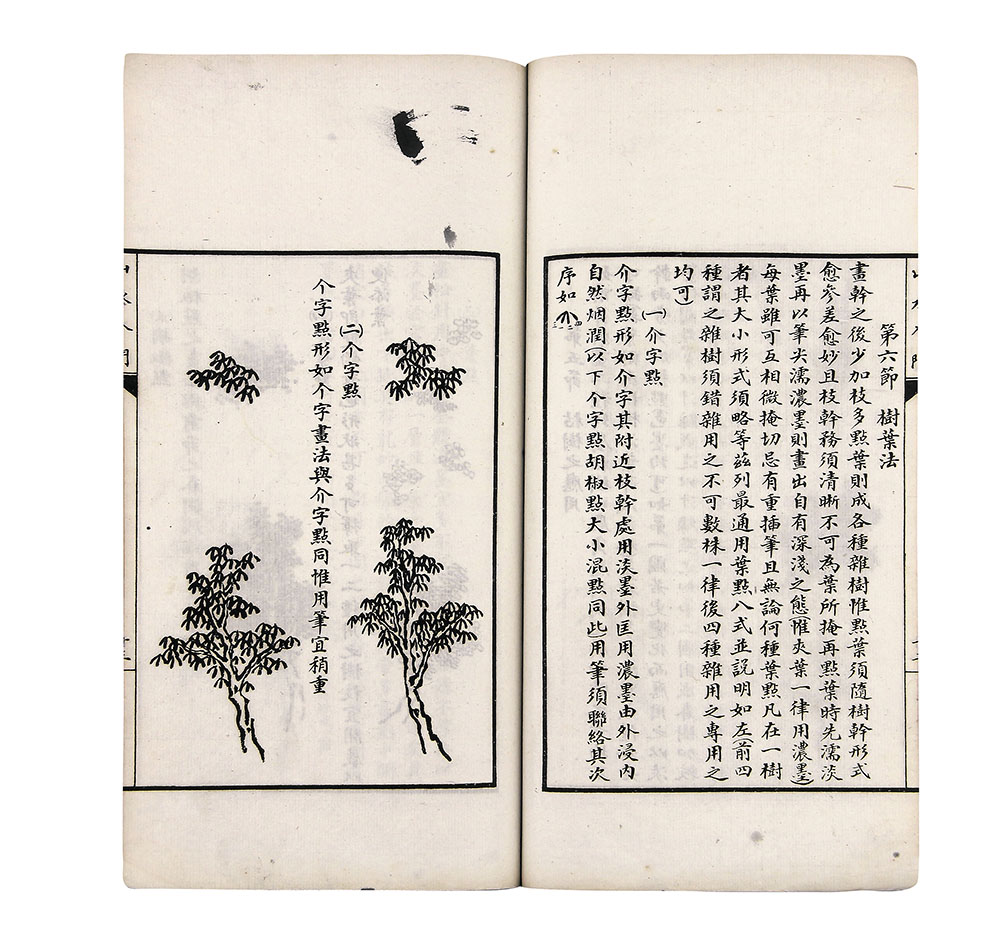 第六節　樹葉法
畫幹之後少加枝多點葉則成各種雜樹惟點葉須隨樹幹形式
愈參差愈妙且枝幹務須清晰不可為葉所掩再點葉時先濡淡
墨再以筆尖濡濃墨則畫出自有深淺之態(惟夾葉一律用濃墨)
每葉雖可互相微掩切忌有重揷筆且無論何種葉點凡在一樹
者其大小形式須略等茲列最通用葉點八式並説明如左(前四
種謂之雜樹須錯雜用之不可數株一律後四種雜用之專用之
均可)
(一)介字點
介字點形如介字其附近枝幹處用淡墨外匡用濃墨由外浸内
自然烟潤(以下个字點胡椒點大小混點同此)用筆須聯絡其次
序如
(二)个字點
个字點形如个字畫法與介字點同惟用筆宜稍重